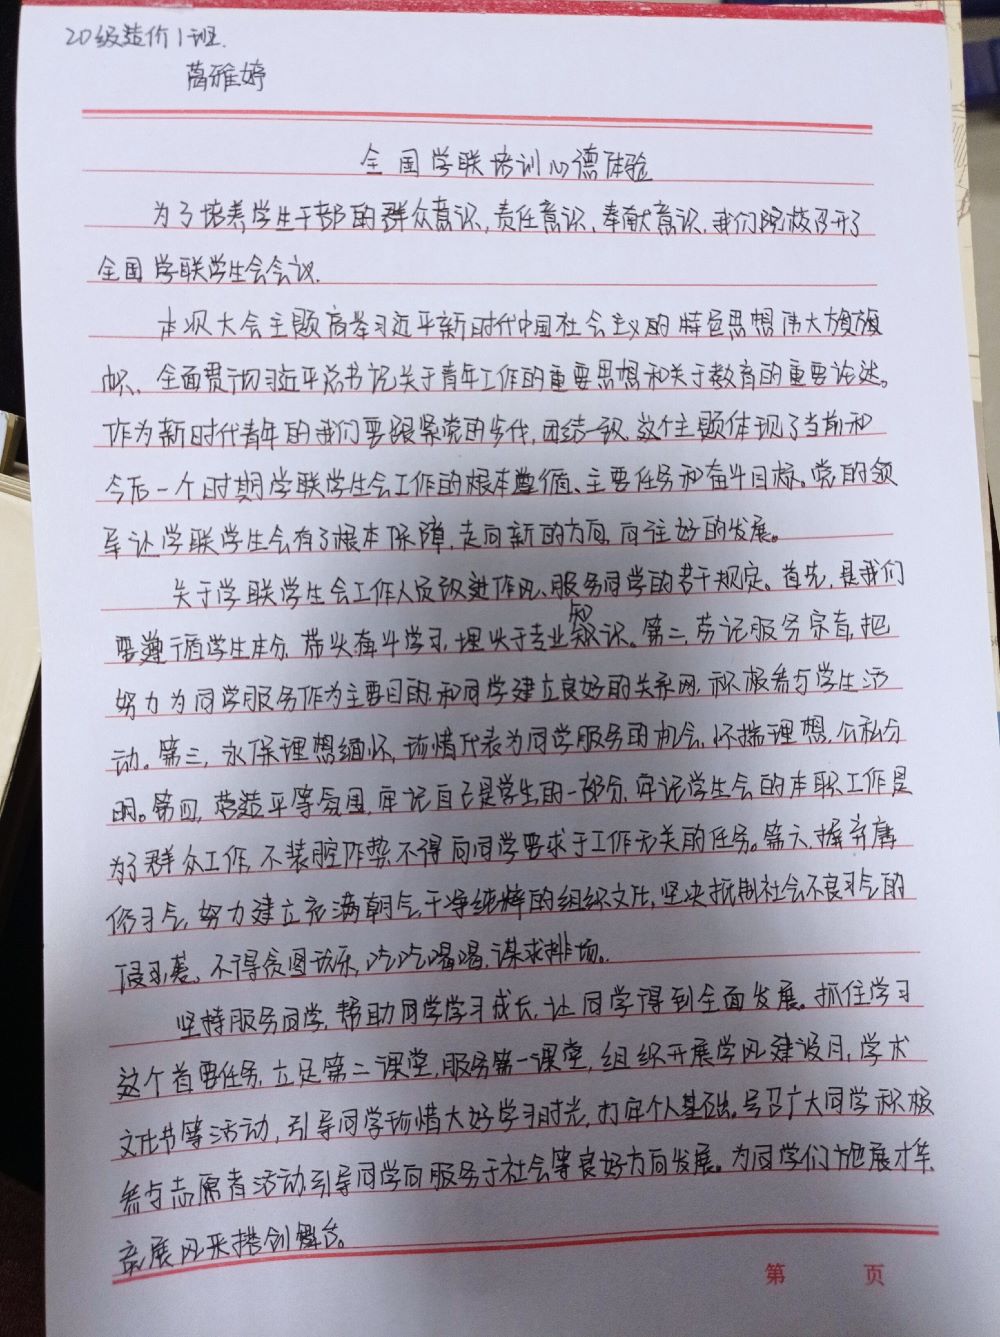 20级造价1班.
蔺雅婷
全国学联培训心德体验
为了培养学生干部的群众意识,责任意识,奉献意识,我们院校召开了
全国学联学生会会议.
本次大会主题高举习近平新时代中国社会主义的特色思想伟大旗旗
帜、全面贯彻习近平总书记关于青年工作的重要思想和关于教育的重要论述。
作为新时代青年的我们要跟紧党的步伐,团结一致,这个主题体现了当前和
今后一个时期学联学生会工作的根本遵循、主要任务和奋斗目标。党的领
导让学联学生会有了根本保障,走向新的方向,向往好的发展。
关于学联学生会工作人员改进作风、服务同学的若干规定。首先,是我们
要遵循学生本分,带头奋斗学习,埋头于专业知识。第二,劳记服务宗旨,把
努力为同学服务作为主要目的,和同学建立良好的关系网,积极参与学生活
动。第三,永保理想缅怀,珍惜代表为同学服务的机会,怀揣理想,公私分
明。第四,营造平等氛围,牢记自己是学生的一部分,牢记学生会的本职工作是
为了群众工作,不装腔作势,不得向同学要求于工作无关的任务。第六,摒弃庸
俗习气,努力建立充满朝气,干净纯粹的组织文化,坚决抵制社会不良习气的
侵袭。不得贪图玩乐,吃吃喝喝,谋求排场。
坚持服务同学,帮助同学学习成长,让同学得到全面发展。抓住学习
这个首要任务,立足第二课堂,服务第一课堂,组织开展学风建设月,学术
文化节等活动,引导同学珍惜大好学习时光,打牢个人基础。号召广大同学积极
参与志愿者活动引导同学向服务于社会等良好方向发展。为同学们施展才华,
展风采搭创舞台。
第 页